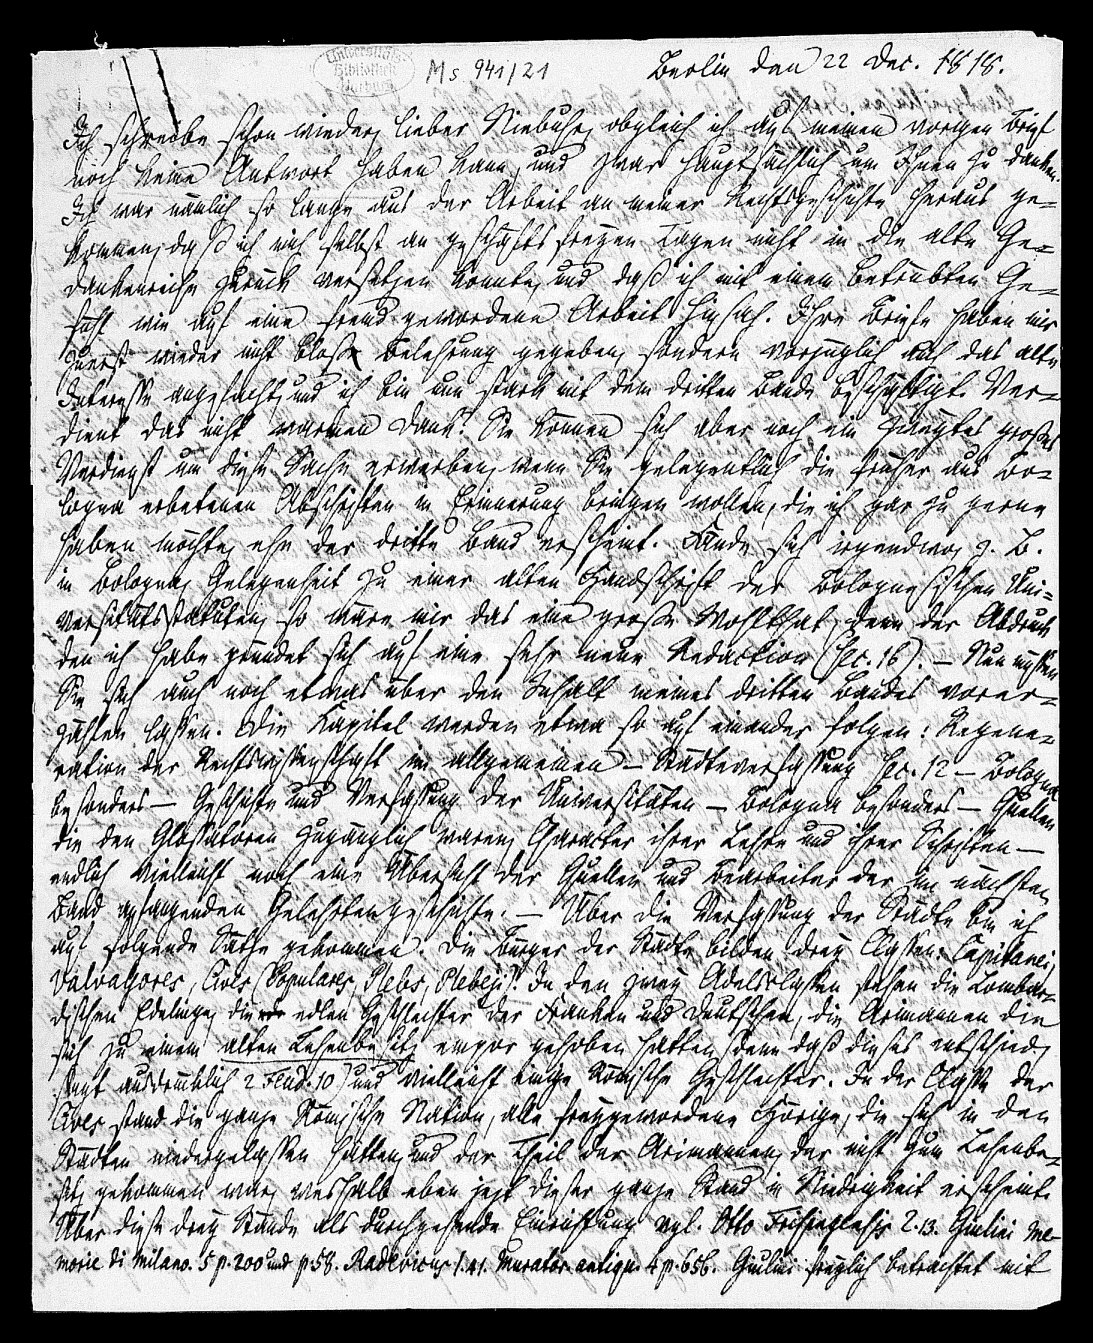 Universitäts-
Bibliothek
Marburg
Ms 941/21
Berlin den 22 Dec. 1818.
Ich schreibe schon wieder, lieber Niebuhr, obgleich ich auf meinen vorigen Brief
noch keine Antwort haben kann, und zwar hauptsächlich um Ihnen zu danken.
Ich war nämlich so lange aus der Arbeit an meiner Rechtsgeschichte heraus ge-
kommen, daß ich mich selbst an geschäftsfreyen Tagen nicht in die alte Ge-
dankenreihe zurück versetzen konnte, und daß ich mit einem betrübten Ge-
fühl wie auf eine fremd gewordene Arbeit hinsah. Ihre Briefe haben mir
zuerst wieder nicht bloße Belehrung gegeben, sondern vorzüglich auch das alte
Interesse angefacht, und ich bin nun stark mit dem dritten Bande beschäftigt. Ver-
dient das nicht warmen Dank? Sie können sich aber noch ein Juengstes großes
Verdienst um diese Sache erwerben, wenn Sie gelegentlich die früher aus Bo-
logna erbetenen Abschriften in Erinnerung bringen wollen, die ich gar zu gerne
haben möchte, ehe der dritte Band erscheint. Fände sich irgendwo, z. B.
in Bologna, Gelegenheit zu einer alten Handschrift der Bolognesischen Uni-
versitätsstatuten, so wäre mir das eine große Wohlthat, denn der Abdruck
den ich habe gründet sich auf eine sehr neue Redaction (Sec. 16). – Nun müssen
Sie sich auch noch etwas über den Inhalt meines dritten Bandes vorer-
zählen lassen. Die Kapitel werden etwa so auf einander folgen: Regene-
ration der Rechtswissenschaft im allgemeinen – Städteverfassung Sec. 12 – Bologna
besonders – Geschichte und Verfassung der Universitäten – Bologna besonders – Quellen
die den Glossatoren zugänglich waren, Character ihrer Lehre und ihrer Schriften –
endlich vielleicht noch eine Übersicht der Quellen und Bearbeiter der im nächsten
Band anfangenden Gelehrtengeschichte. – Über die Verfassung der Städte bin ich
auf folgende Sätze gekommen. Die Bürger der Städte bilden drey Classen: Capitanei,
Valvassores, Cives (Populares, Plebs, Pleben). In den zwey Adelsclassen stehen die Lombar-
dischen Edelinge, die edlen Geschlechter der Franken und Deutschen, die Arimannen die
sich zu einem alten Lehenbesitz empor gehoben hatten (denn daß dieses entschied,
sagt ausdrücklich 2 Feud. 10) und vielleicht einige Römische Geschlechter. In der Classe der
Cives stand die ganze Römische Nation, alle freygewordene Hörige, die sich in den
Städten niedergelassen hatten, und der Theil der Arimannen, der nicht zum Lehenbe-
sitz gekommen war, weshalb eben jezt dieser ganze Stand in Niedrigkeit erscheint.
Über diese drey Stände als durchgehende Einrichtung vgl. Otto Frisingensis 2. 13. Giulini Me-
morie di Milano. 5 p. 200 und p. 58. Radevicus 1. 41. Murator. antiqu. 4 p. 656. Giulini freylich betrachtet mit